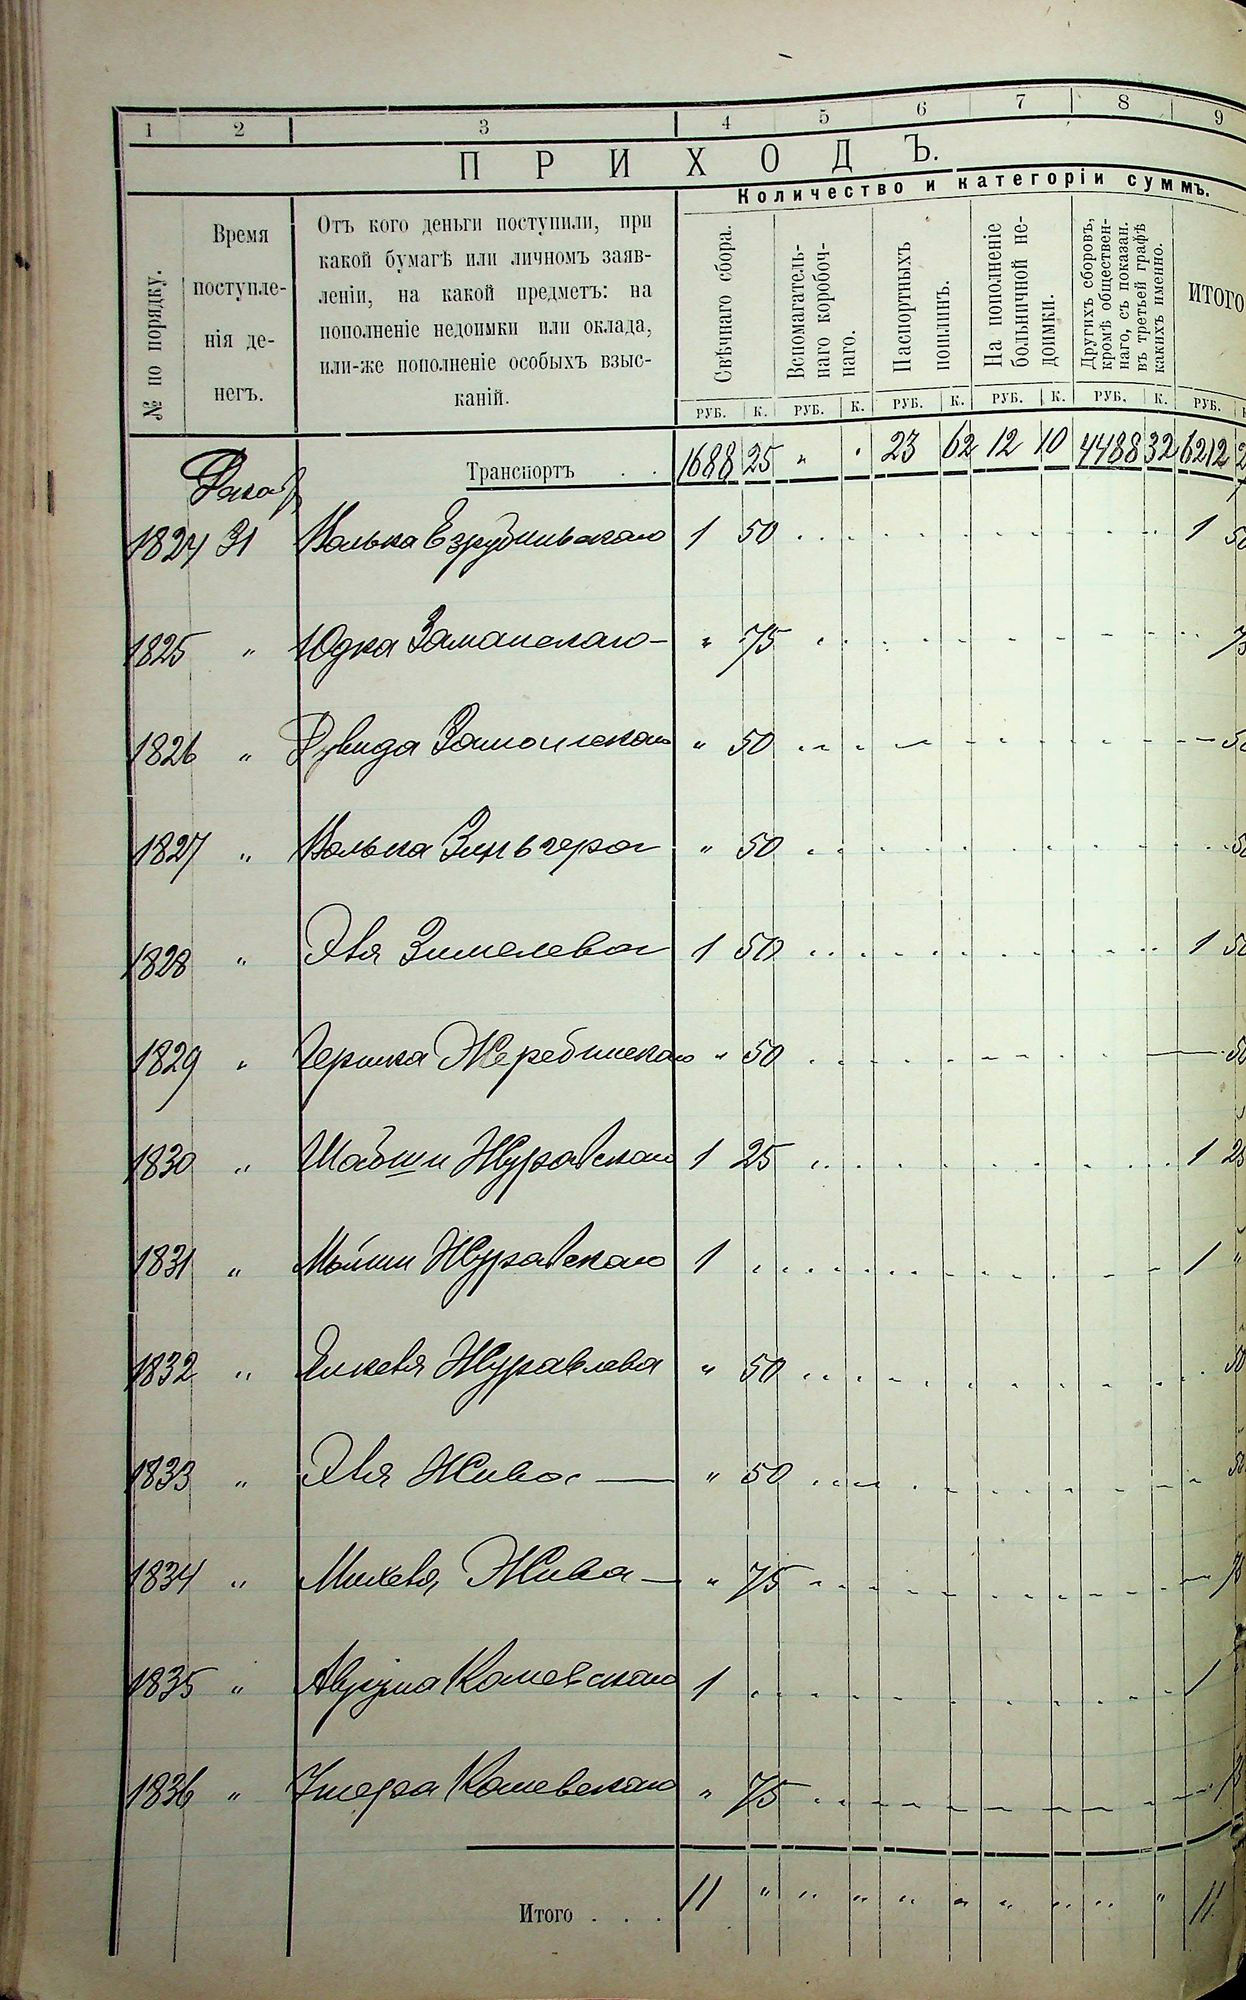 1 2 3 4 5 6 7 8 9
ПРИХОДЪ.
Количество и категоріи суммъ.
№ по порядку.
Время
поступле-
нія де-
негъ.
Отъ кого деньги поступили, при
какой бумагѣ или личномъ заяв-
леніи, на какой предметъ: на
пополненіе недоимки или оклада,
или-же пополненіе особыхъ взыс-
каній.
Свѣчнаго сбора.
Вспомагатель-
наго коробоч-
наго.
Паспортныхъ
пошлинъ.
На пополненіе
больничной не-
доимки.
Другихъ сборовъ,
кромѣ обществен-
наго, съ показан.
въ третьей графѣ
какихъ именно.
ИТОГО
РУБ. К. РУБ. К. РУБ. К. РУБ. К. РУБ. К. РУБ.
Транспортъ . . 1688 25 " " 23 62 12 10 4488 32 6212 2
Декаб
1824 31 Волька 1 50 1 50
1825 " Юдка Заманскаго " 75 75
1826 " Замойскаго " 50 50
1827 " Волька Зингера " 50 50
1828 " Эля Зимелева 1 50 1 50
1829 " Гершка Жеребинскаго " 50 50
1830 " Журавскаго 1 25 1 25
1831 " Журавскаго 1 1 "
1832 " Журавлева " 50 50
1833 " Эля Жива " 50 50
1834 " Михеля Жива " 75 75
1835 " Абрума Кошевскаго 1 1
1836 " Кошевскаго " 75
Итого . . . 11 " " " " " " " " " 11